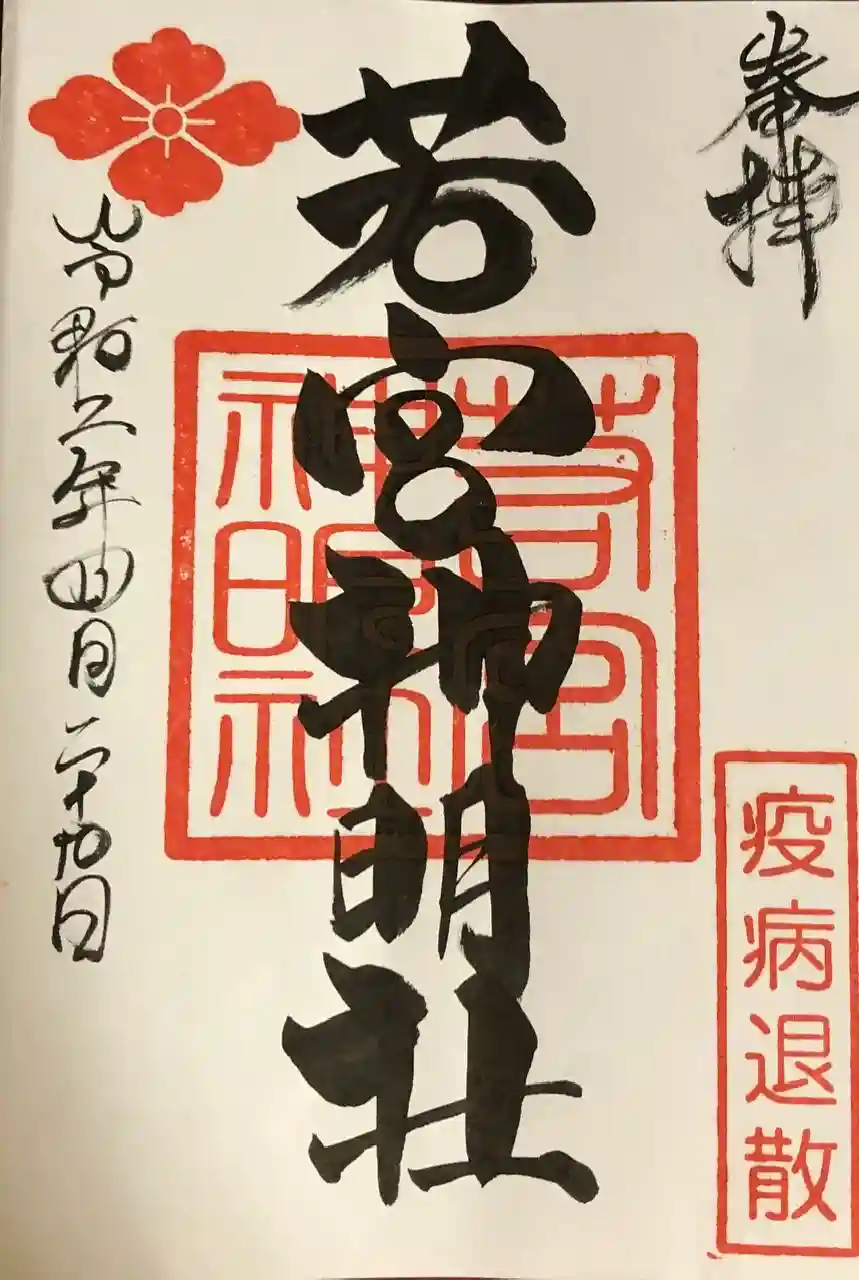 奉拝
若宮神明社
若宮
神明社
疫病退散
令和二年四月二十九日